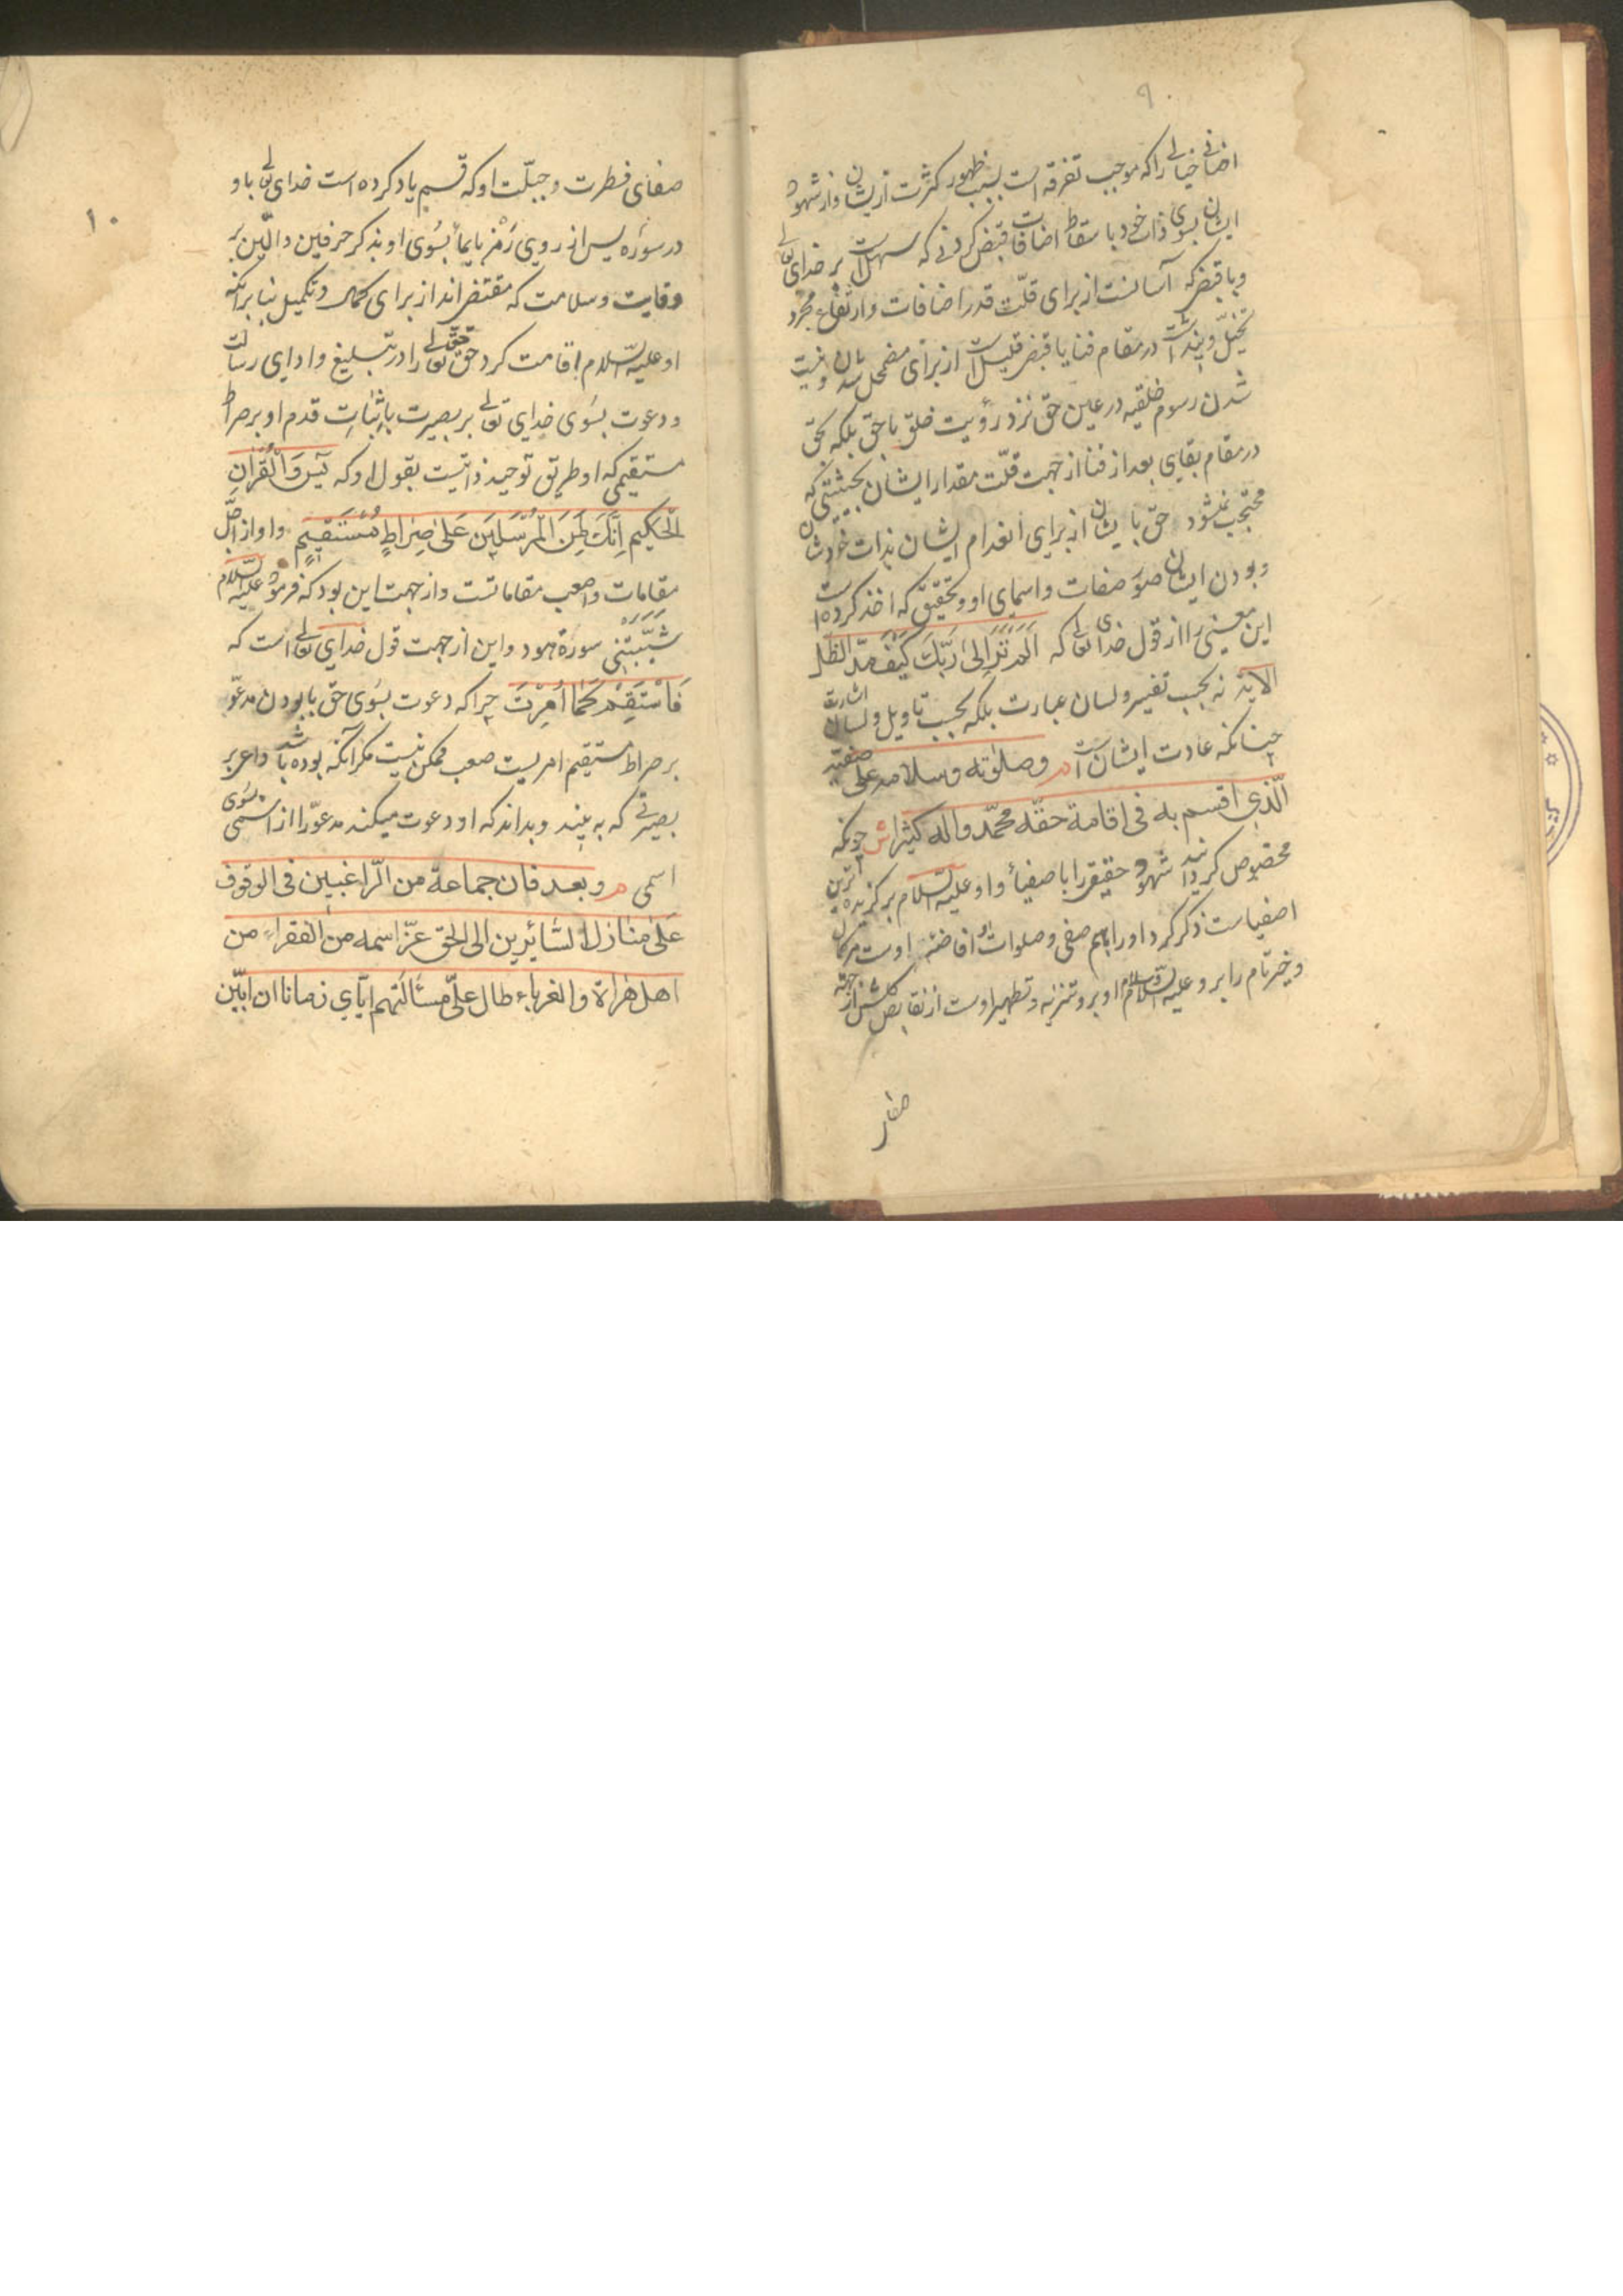 ۹
اضافی خیالی را که موجب تفرقه است بسبب ظهور کثرت ازیشان و از شهود
ایشان بسوی ذات خود باسقاط اضافات قبض کردنی که سهلست بر خدای تعالی
و یا قبضی که آسانست از برای قلّت قدر اضافات و ارتفاع مجرد
تخیّل و پنداشت در مقام فنا یا قبض قلیل است از برای مضمحل شدن و نیست
شدن رسوم خلقیه در عین حق نزد رؤیت خلق با حق بلکه بحق
در مقام بقای بعد از فنا از جهت قلّت مقدار ایشان بحیثیتی که
محتجب نمیشود حق بایشان از برای انعدام ایشان بذات خودشان
و بودن ایشان صور صفات و اسمای او و تحقیق که اخذ کرده است
این معنی را از قول خدای تعالی که الم تر الی ربّک کیف مدّ الظل
الایة نه بحسب تفسیر و لسان عبارت بلکه بحسب تاویل و لسان اشارت
چنانکه عادت ایشان است م وصلوته وسلامه علی صفیه
الّذی اقسم به فی اقامة حقّه محمّد واله کثیرا ش چونکه
مخصوص کردانید شهود حقیقی را باصفیا و او علیه السلام برکزیده ترین
اصفیاست ذکر کرد او را باسم صفی و صلوات او افاضه اوست مر کمال
و خیر تام را بر و علیه السّلام و سلام او برو تنزیه و تطهیر اوست از نقایص کلش از جهة
صفا
۱۰
صفای فطرت و جبلّت او که قسم یاد کرده است خدای تعالی باو
در سوره یس از روی رمز بایما بسوی او بذکر حرفین دالّین بر
وقایت و سلامت که مقتضی اند از برای کمال و تکمیل بنابر انکه
او علیه السّلام اقامت کرد حق حق تعالی را در تبلیغ و ادای رسالت
و دعوت بسوی خدای تعالی بر بصیرت باثبات قدم او بر صراط
مستقیمی که او طریق توحید ذاتیست بقول او که یس والقران
الحکیم انّک لمن المرسلین علی صراط مستقیم و او از اجلّ
مقامات و اصعب مقاماتست و از جهت این بود که فرمود علیه السّلام
شیّبتنی سورة هود و این از جهت قول خدای تعالی است که
فاستقم کما امرت چرا که دعوت بسوی حق با بودن مدعوّ
بر صراط مستقیم امریست صعب ممکن نیست مکر آنکه بوده باشد داعی بر
بصیرتی که به بیند و بداند که او دعوت میکند مدعوّ را از اسمی بسوی
اسمی م وبعد فان جماعة من الرّاغبین فی الوقوف
علی منازل السّایرین الی الحق عزّ اسمه من الفقراء من
اهل هراة والغرباء طال علیّ مسألتهم ایّای زمانا ان ابیّن